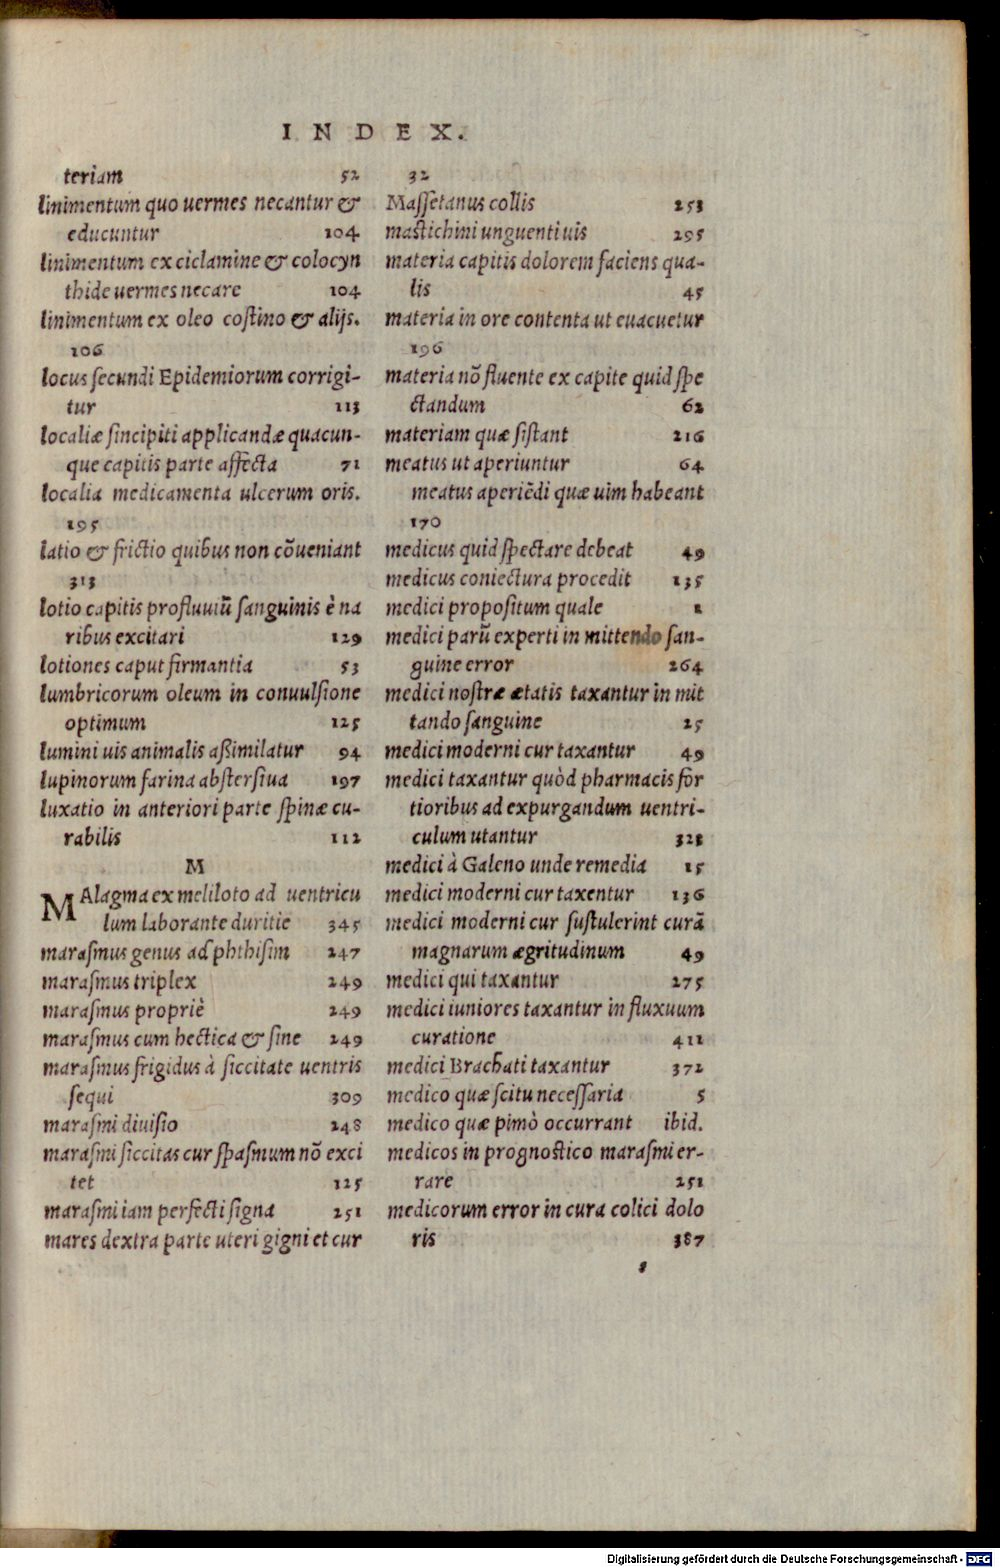 INDEX.
teriam 52
linimentum quo uermes necantur &
educuntur 104
linimentum ex ciclamine & colocyn
thide uermes necare 104
linimentum ex oleo costino & alijs.
106
locus secundi Epidemiorum corrigi-
tur 113
localiæ sincipiti applicandæ quacun-
que capitis parte affecta 71
localia medicamenta ulcerum oris.
195
latio & frictio quibus non cōueniant
313
lotio capitis profluuiū sanguinis è na
ribus excitari 129
lotiones caput firmantia 53
lumbricorum oleum in conuulsione
optimum 125
lumini uis animalis aßimilatur 94
lupinorum farina abstersiua 197
luxatio in anteriori parte spinæ cu-
rabilis 112
M
MAlagma ex meliloto ad uentricu
lum laborante duritie 345
marasmus genus ad phthisim 247
marasmus triplex 249
marasmus propriè 249
marasmus cum hectica & sine 249
marasmus frigidus à siccitate uentris
sequi 309
marasmi diuisio 248
marasmi siccitas cur spasmum nō exci
tet 125
marasmi iam perfecti signa 251
mares dextra parte uteri gigni et cur
32
Massetanus collis 253
mastichini unguenti uis 295
materia capitis dolorem faciens qua-
lis 45
materia in ore contenta ut euacuetur
196
materia nō fluente ex capite quid spe
ctandum 62
materiam quæ sistant 216
meatus ut aperiuntur 64
meatus aperiēdi quæ uim habeant
170
medicus quid spectare debeat 49
medicus coniectura procedit 135
medici propositum quale 1
medici parū experti in mittendo san-
guine error 264
medici nostræ ætatis taxantur in mit
tando sanguine 25
medici moderni cur taxantur 49
medici taxantur quòd pharmacis for
tioribus ad expurgandum uentri-
culum utantur 328
medici à Galeno unde remedia 15
medici moderni cur taxentur 136
medici moderni cur sustulerint curā
magnarum ægritudinum 49
medici qui taxantur 275
medici iuniores taxantur in fluxuum
curatione 411
medici Brachati taxantur 372
medico quæ scitu necessaria 5
medico quæ pimò occurrant ibid.
medicos in prognostico marasmi er-
rare 251
medicorum error in cura colici dolo
ris 387
Digitalisierung gefördert durch die Deutsche Forschungsgemeinschaft - DFG